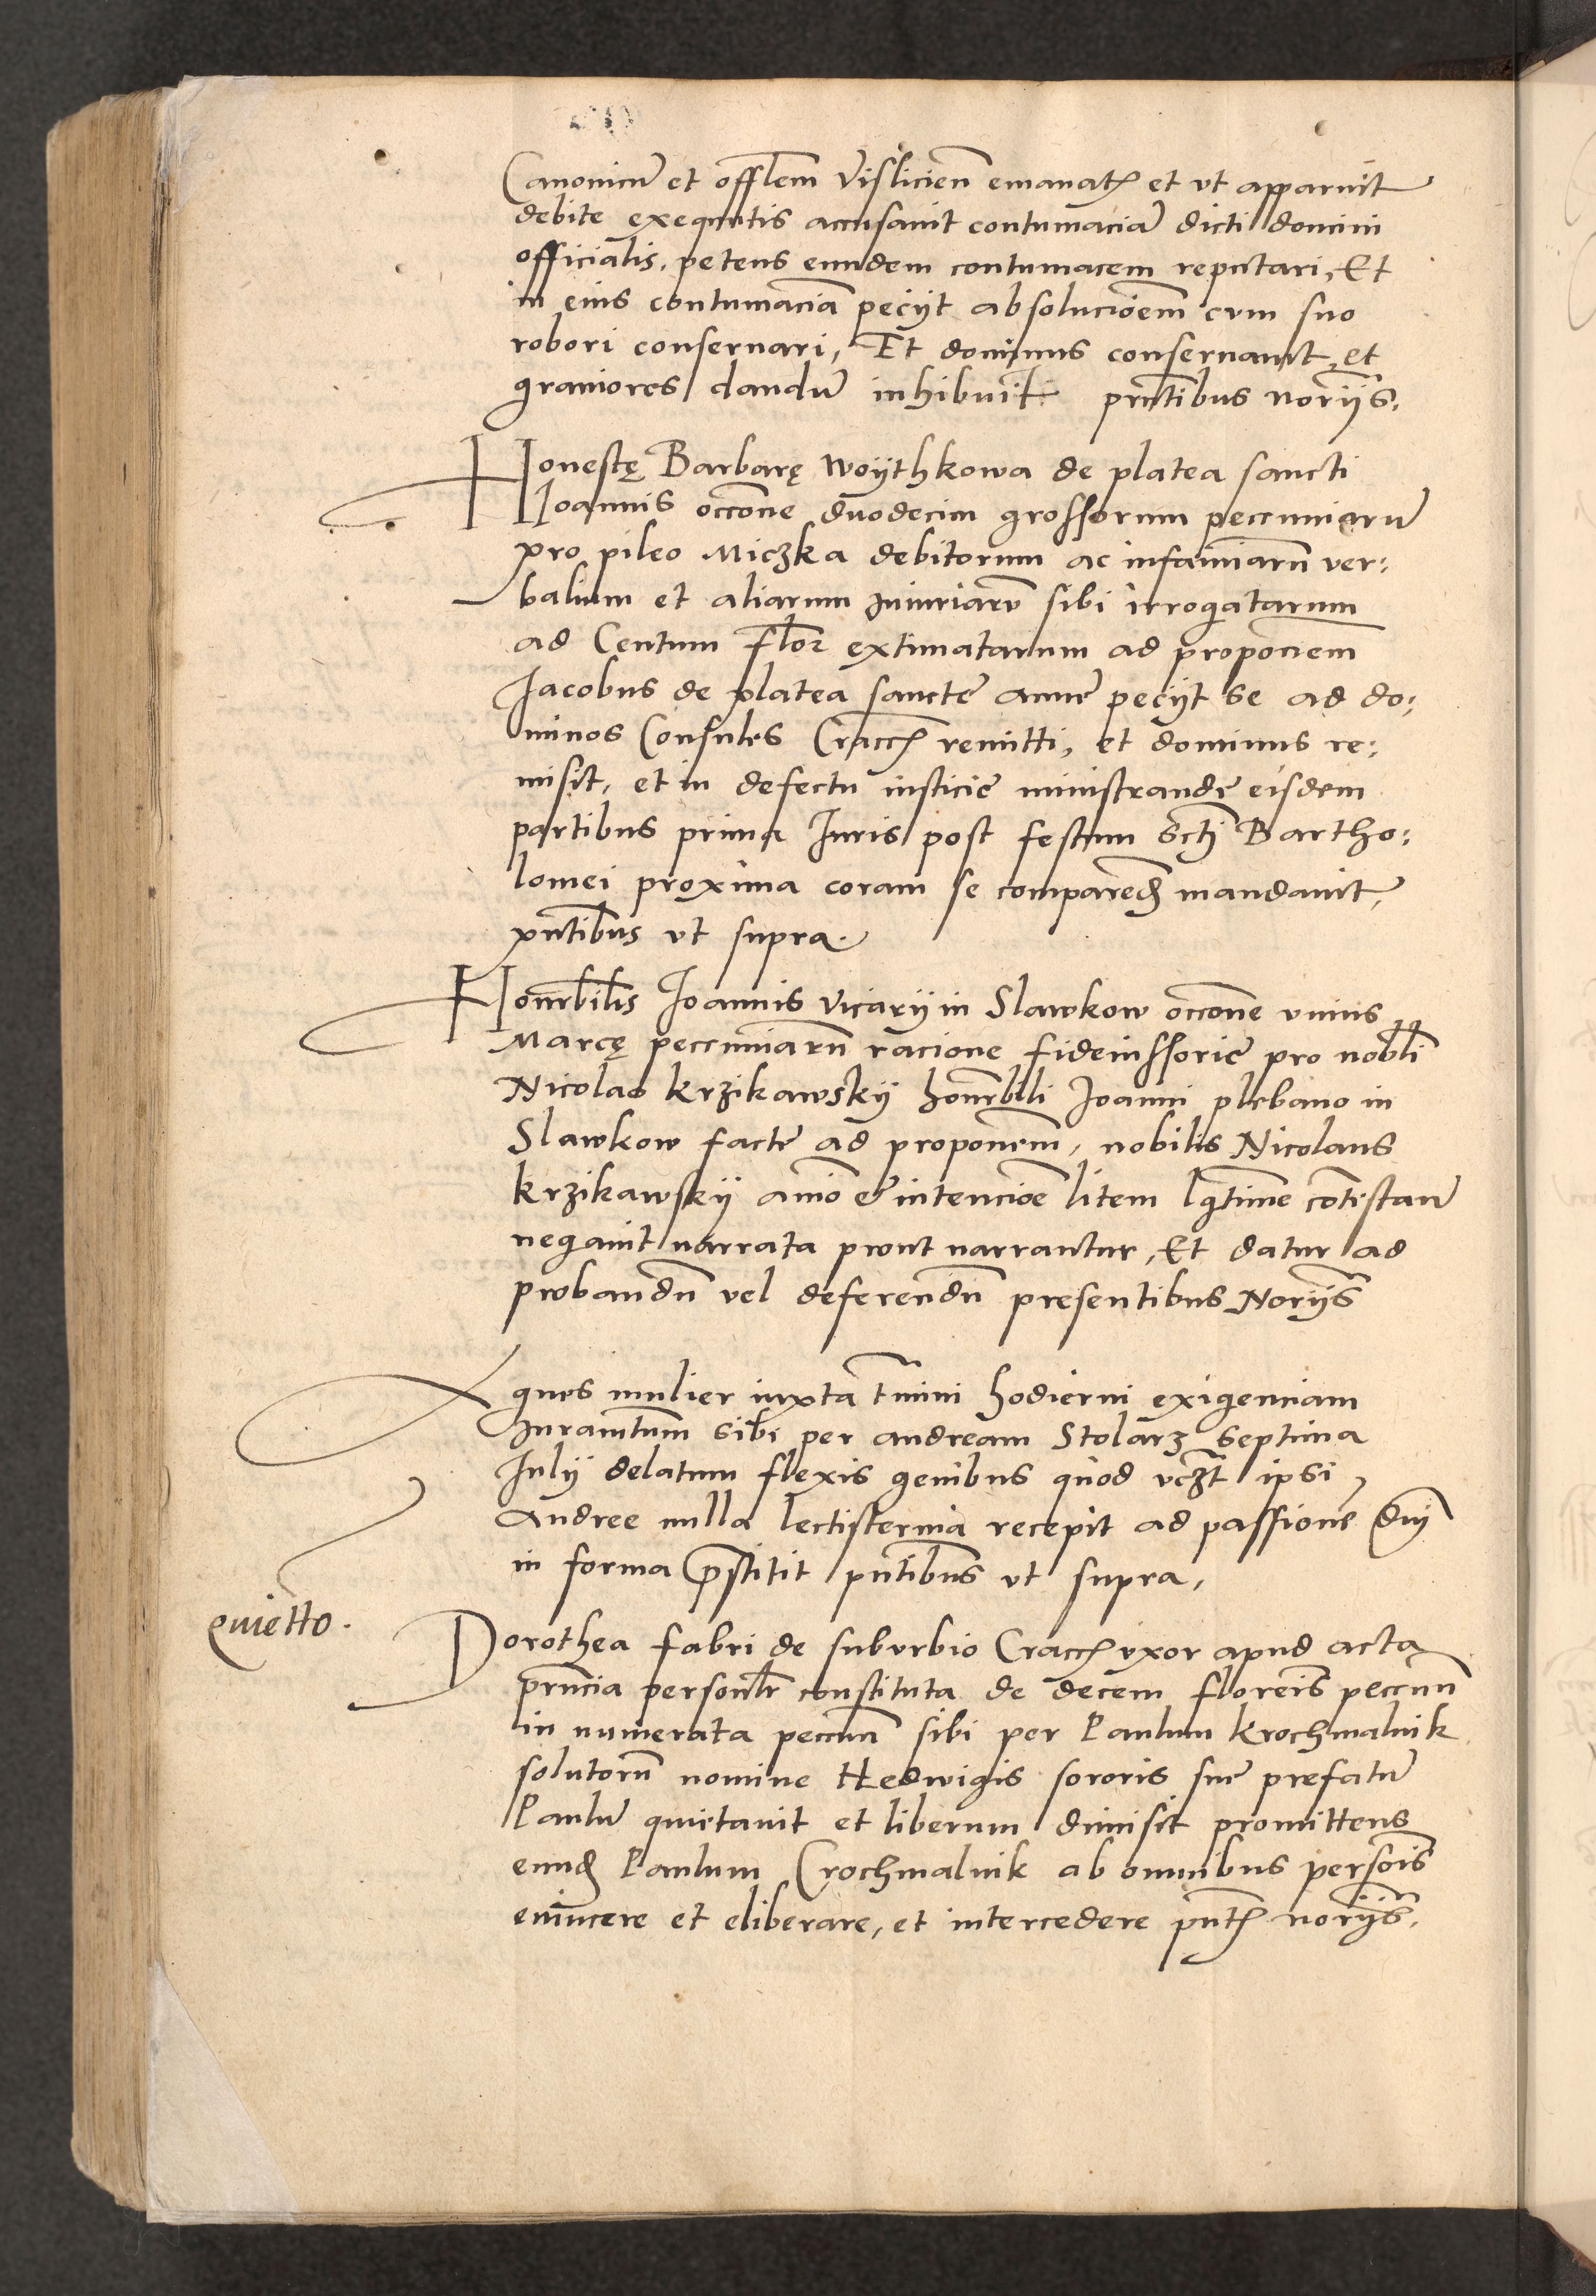 Canonicu͞ et offłem Vislicien̄ emanatꝭ et vt apparuit
debite exequutis accusauit contumacia͞ dicti domini
officialis, petens eundem contumacem reputari, Et
in eius contumacia͞ pecijt absolucioe͞m cum suo
robori conseruari, Et dominus conseruauit, et
grauiores dandu͞ inhibuit pn̄tibus nor̄ijs.
Honestę Barbarę woythkowa de platea sancti
Joannis occōne duodecim grossorum peccuniaru͞
pro pileo Miczka debitorum ac infamiaru͞ ver:
balium et aliarum iniuriaru͞ sibi irrogatarum
ad Centum flor extimatarum ad propōnem
Jacobus de platea sanctę annę pecijt se ad do:
minos Consules Craccꝭ remitti, et dominus re:
misit, et in defectu iusticię ministrandę eisdem
partibus prima Juris post festum scti Bartho:
lomei proxima coram se comparend̄ mandauit,
pn̄tibus vt supra.
Honorbilis Joannis vicarij in Slawkow occōne vnius
Marcę peccuniaru͞ racione fideiussorię pro nobłi
Nicolao krzikawskij honorbili Joanni plebano in
Slawkow factę ad propōnem, nobilis Nicolaus
krzikawskij aīo & intencioe͞ litem lgtime contestan͞
negauit narrata prout narrantur, Et datur ad
probandu͞ vel deferendu͞ presentibus Nor̄ijs
Agnes mulier iuxta t͞mini hodierni exigenciam
Juramtum sibi per andream Stolarz septima
Julij delatum flexis genibus quod vczt ipsi
Andree nulla lectisternia recepit ad passione͞ dnj
in forma p̄stitit pn̄tibus vt supra,
quietto.
Dorothea fabri de suburbio Craccꝭ vxor apud acta
pn̄cia personłr constituta de decem florenis peccun̄
in numerata peccun̄ sibi per Paulum krochmalnik
solutoru͞ nomine Hedwigis sororis suę prefatu͞
Paulu͞ quietauit et liberum dimisit promittens
eund̄ Paulum Crochmalnik ab omnibus persois͞
euincere et eliberare, et intercedere pn̄tꝭ nor̄ijs.